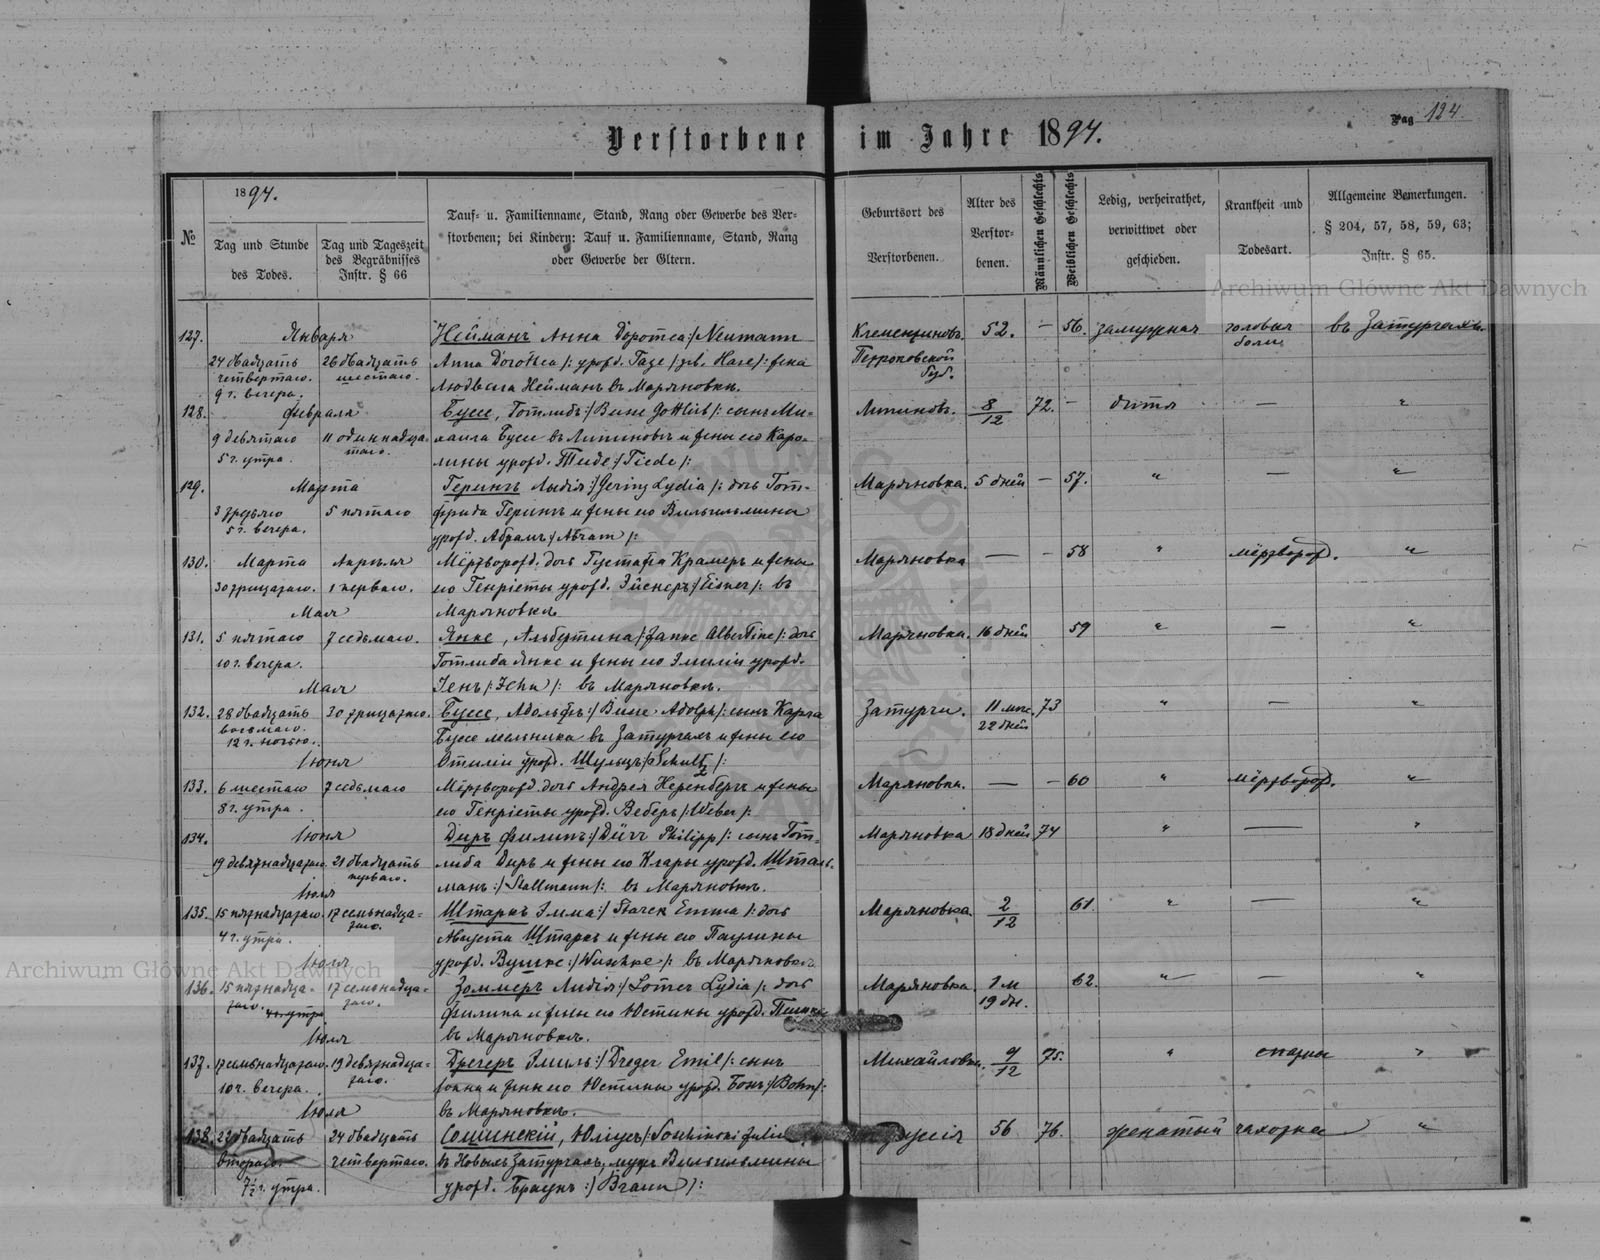 Pag 124.
Verstorbene im Jahre 1894.
№
1894.
Tag und Stunde
des Todes.
Tag und Tageszeit
des Begräbnisses
Instr. § 66
Tauf- u. Familienname, Stand, Rang oder Gewerbe des Ver-
storbenen; bei Kindern: Tauf u. Familienname, Stand, Rang
oder Gewerbe der Eltern.
Geburtsort des
Verstorbenen.
Alter des
Verstor-
benen.
Männlichen Geschlechts
Weiblichen Geschlechts
Ledig, verheirathet,
verwittwet oder
geschieden.
Krankheit und
Todesart.
Allgemeine Bemerkungen.
§ 204, 57, 58, 59, 63;
Instr. § 65.
Archiwum Główne Akt Dawnych
127. Января Нейманъ Анна Доротеа /: Neumann 52. — 56. замужняя головыя въ Затурцахъ.
24 двадцать 26 двадцать Anna Dorothea :/ урожд. Газе /: geb. Hase :/ жена Петроковской боли.
четвертаго. шестаго. Людвига Нейманъ въ Маряновкѣ. губ.
9 ч. вечера.
128. Февраля Буссе, Готлибъ /: Busse Gottlieb :/ сынъ Ми- Липиновъ. 8/12 72. — дитя — "
9 девятаго 11 одиннадца- хаила Буссе въ Липиновѣ и жены его Каро-
5 ч. утра. таго. лины урожд. Тиде /: Tiede :/
129. Марта Герингъ Лидія /: Gering Lydia :/ дочь Гот- Маряновка. 5 дней — 57. " — "
3 третьяго 5 пятаго фрида Герингъ и жены его Вильгельмины
5 ч. вечера. урожд. Абрамъ /: Abram :/
130. Марта Апрѣля Мёртворожд. дочь Густафа Крамеръ и жены Маряновка — - 58 " мёртворожд. "
30 тридцатаго. 1 перваго. его Генріеты урожд. Эйснеръ /: Eisner :/ въ
Мая Маряновкѣ
131. 5 пятаго 7 седьмаго. Янке, Альбертина /: Janke Albertine :/ дочь Маряновка. 16 дней 59 " — "
10 ч. вечера. Готлиба Янке и жены его Эмиліи урожд.
Мая Іенъ /: Jehn :/ въ Маряновкѣ.
132. 28 двадцать 30 тридцатаго. Буссе, Адольфъ /: Busse Adolph :/ сынъ Карла Затурцы. 11 мѣс. 73 " — "
восьмаго. Буссе мельника въ Затурцахъ и жены его 22 дней
12 ч. ночью.
Іюня Отиліи урожд. Шульцъ /: Schultz :/
133. 6 шестаго 7 седьмаго Мёртворожд. дочь Андрея Херенбергъ и жены Маряновка. — — 60 " мёртворожд. "
8 ч. утра. его Генріеты урожд. Веберъ /: Weber :/
134. Іюня Диръ Филипъ /: Dürr Philipp :/ сынъ Гот- Маряновка 18 дней 74 " — "
19 девятнадцатаго. 21 двадцать либа Диръ и жены его Клары урожд. Шталь-
перваго.
Іюля манъ /: Stallmann :/ въ Маряновкѣ.
135. 15 пятнадцатаго. 17 семьнадца- Штаркъ Эмма /: Starck Emma :/ дочь Маряновка. 2/12 61. " — "
4 ч. утра. таго. Августа Штаркъ и жены его Паулины
Іюля урожд. Вушке /: Wuschke :/ въ Маряновкѣ
Archiwum Główne Akt Dawnych
136. 15 пятнадца- 17 семьнадца- Зоммеръ Лидія /: Somer Lydia :/ дочь Маряновка. 1 м 62. " — "
таго. утра таго. Филипа и жены его Юстины урожд. 19 дн.
Іюля въ Маряновкѣ.
137. 17 семьнадцатаго. 19 девятнадца- Дрегеръ Эмиль /: Dreger Emil :/ сынъ Михайловка. 9/12 75. " спазмы "
10 ч. вечера. таго. и жены его Юстины урожд. Бонъ /: Bohn :/
Іюля въ Маряновкѣ.
138. 22 двадцать 24 двадцать 56 76. женатый чахотка "
втораго. четвертаго. въ Новыхъ Затурцахъ, мужъ Вильгельмины
7½ ч. утра. урожд. Браунъ /: Braun :/